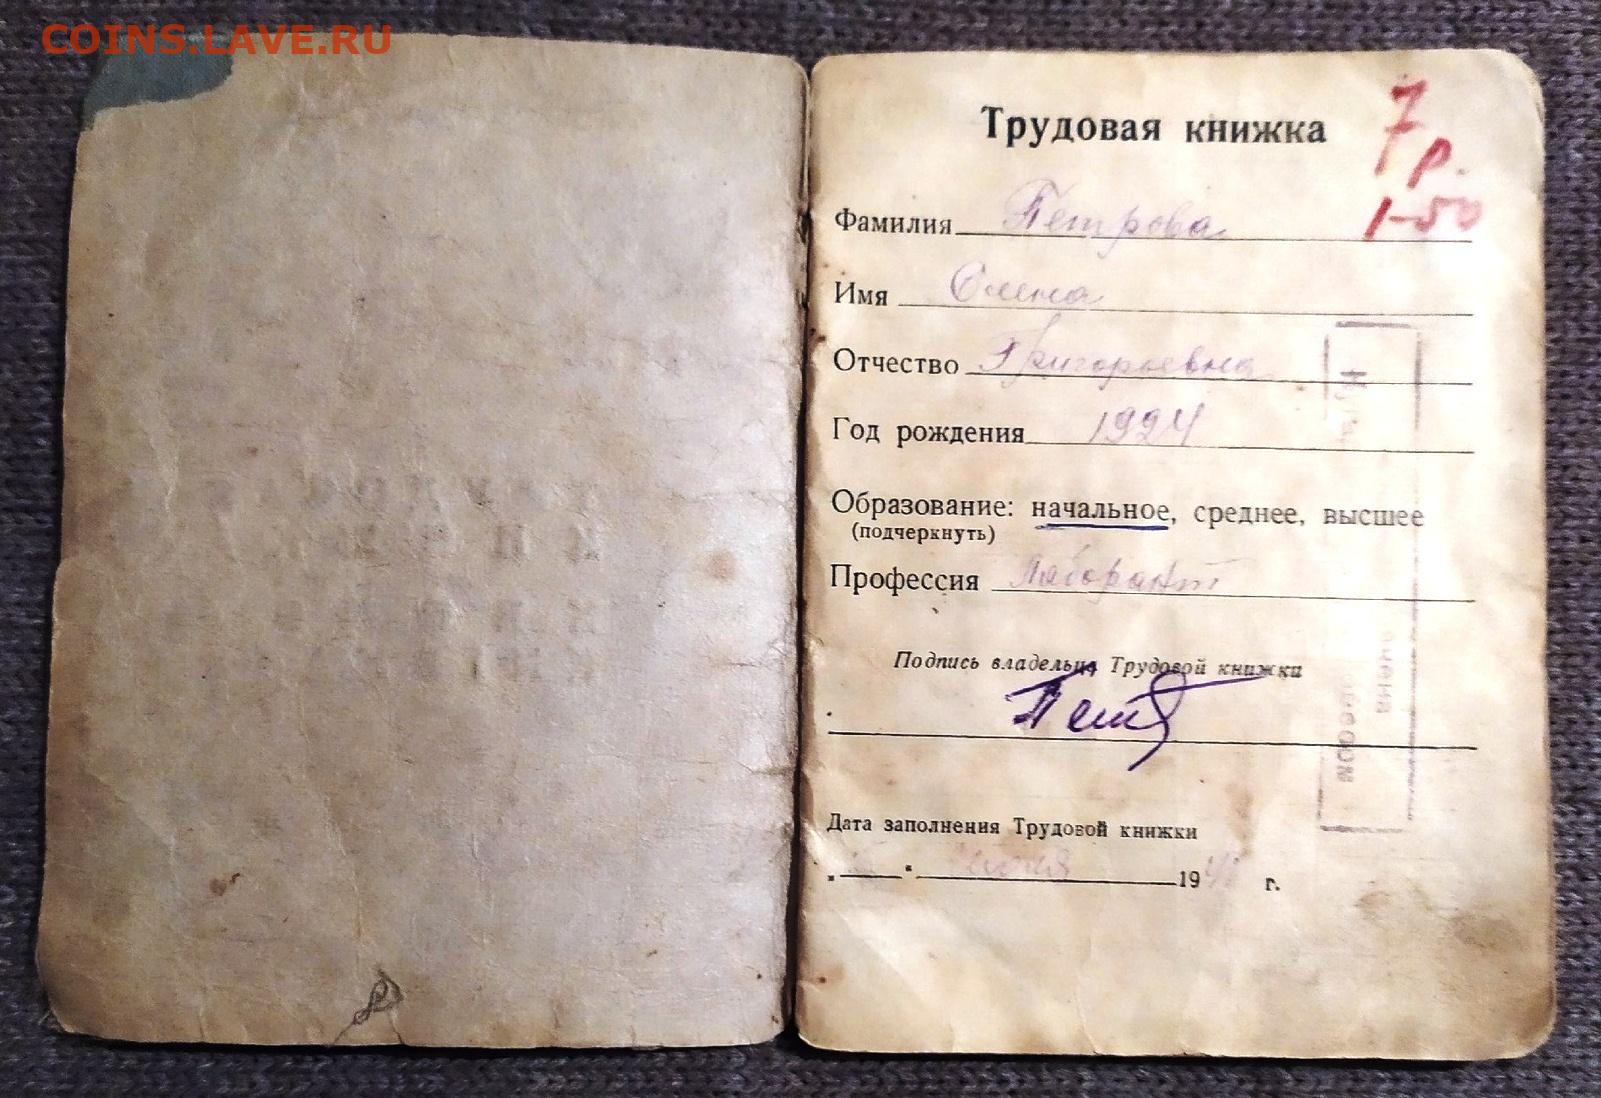 COINS.LAVE.RU
Трудовая книжка
7 р.
1-50
Фамилия Петрова
Имя Олена
Отчество Григорьевна
Год рождения 1924
Образование: начальное, среднее, высшее
(подчеркнуть)
Профессия Лаборант
Подпись владельца Трудовой книжки
Дата заполнения Трудовой книжки
" " 19 г.